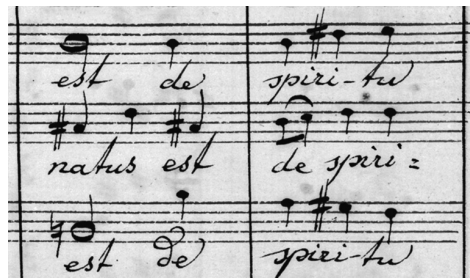 est de spiri-tu
natus est de spiri=
est de spiri-tu